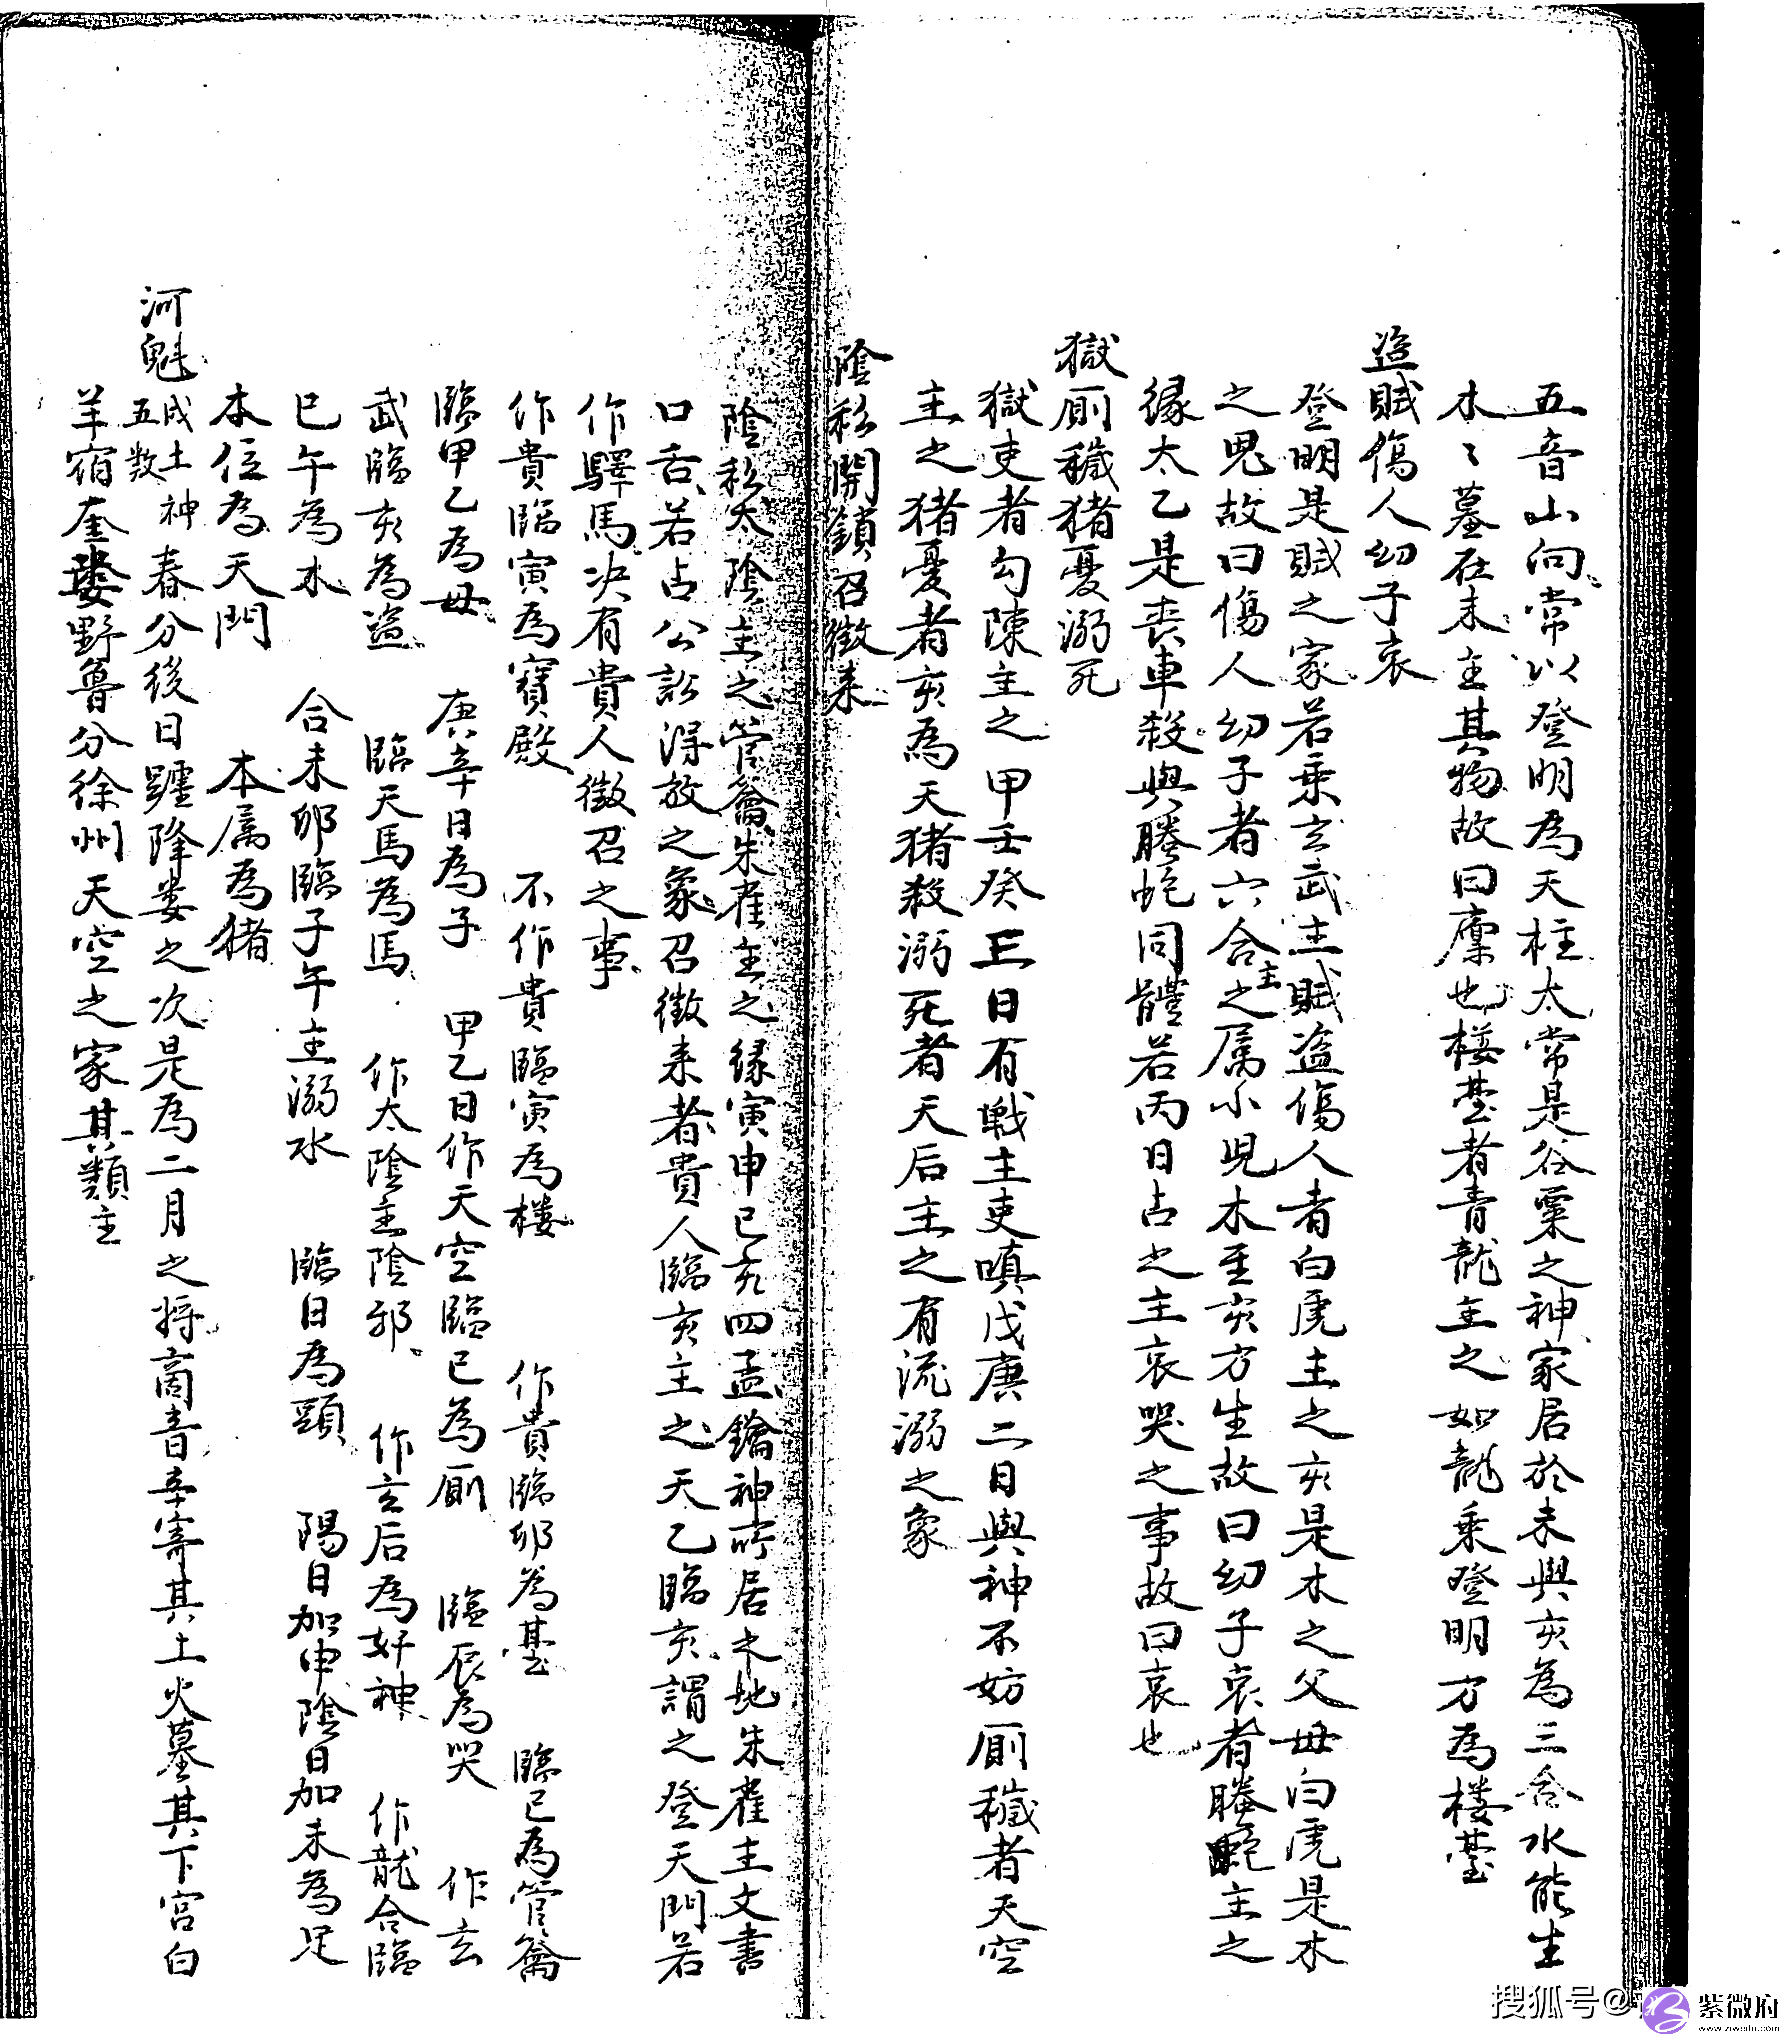 五音山向常以登明為天柱太常是谷粟之神家居於未與亥為三合水能生
木〻墓在未主其物故曰廩也楼臺者青龍主之如龍乘登明方為楼臺
盜賊傷人幼子哀
登明是賊之家若乘玄武主賊盜傷人者白虎主之亥是木之父母白虎是木
之鬼故曰傷人幼子者六合主之属小児木至亥方生故曰幼子哀者螣蛇主之
縁太乙是丧車殺與螣蛇同體若丙日占之主哀哭之事故曰哀也
獄厠穢猪憂溺死
獄吏者勾陳主之甲壬癸三日有戰主吏嗔戊庚二日與神不妨厠穢者天空
主之猪憂者亥為天猪殺溺死者天后主之有流溺之象
陰私開鎖召徵来
陰私太陰主之管籥朱雀主之縁寅申巳亥四孟鑰神所居之地朱雀主文書
口舌若占公訟得放之象召徵来者貴人臨亥主之天乙臨亥謂之登天門若
作驛馬决有貴人徵召之事
作貴臨寅為寳殿 不作貴臨寅為楼 作貴臨卯為臺 臨巳為管籥
臨甲乙為母 庚辛日為子 甲乙日作天空臨巳為厠 臨辰為哭 作玄
武臨亥為盜 臨天馬為馬 作太陰主陰邪 作玄后為奸神 作龍合臨
巳午為木 合未卯臨子午主溺水 臨日為頭 陽日加申陰日加未為足
本位為天門 本属為猪
河魁 戌土神五数 春分後日躔降娄之次是為二月之将商音辛寄其土火墓其下宫白
羊宿奎婁野魯分徐州天空之家其類主
搜狐号@
紫微府
www.ziweifu.com